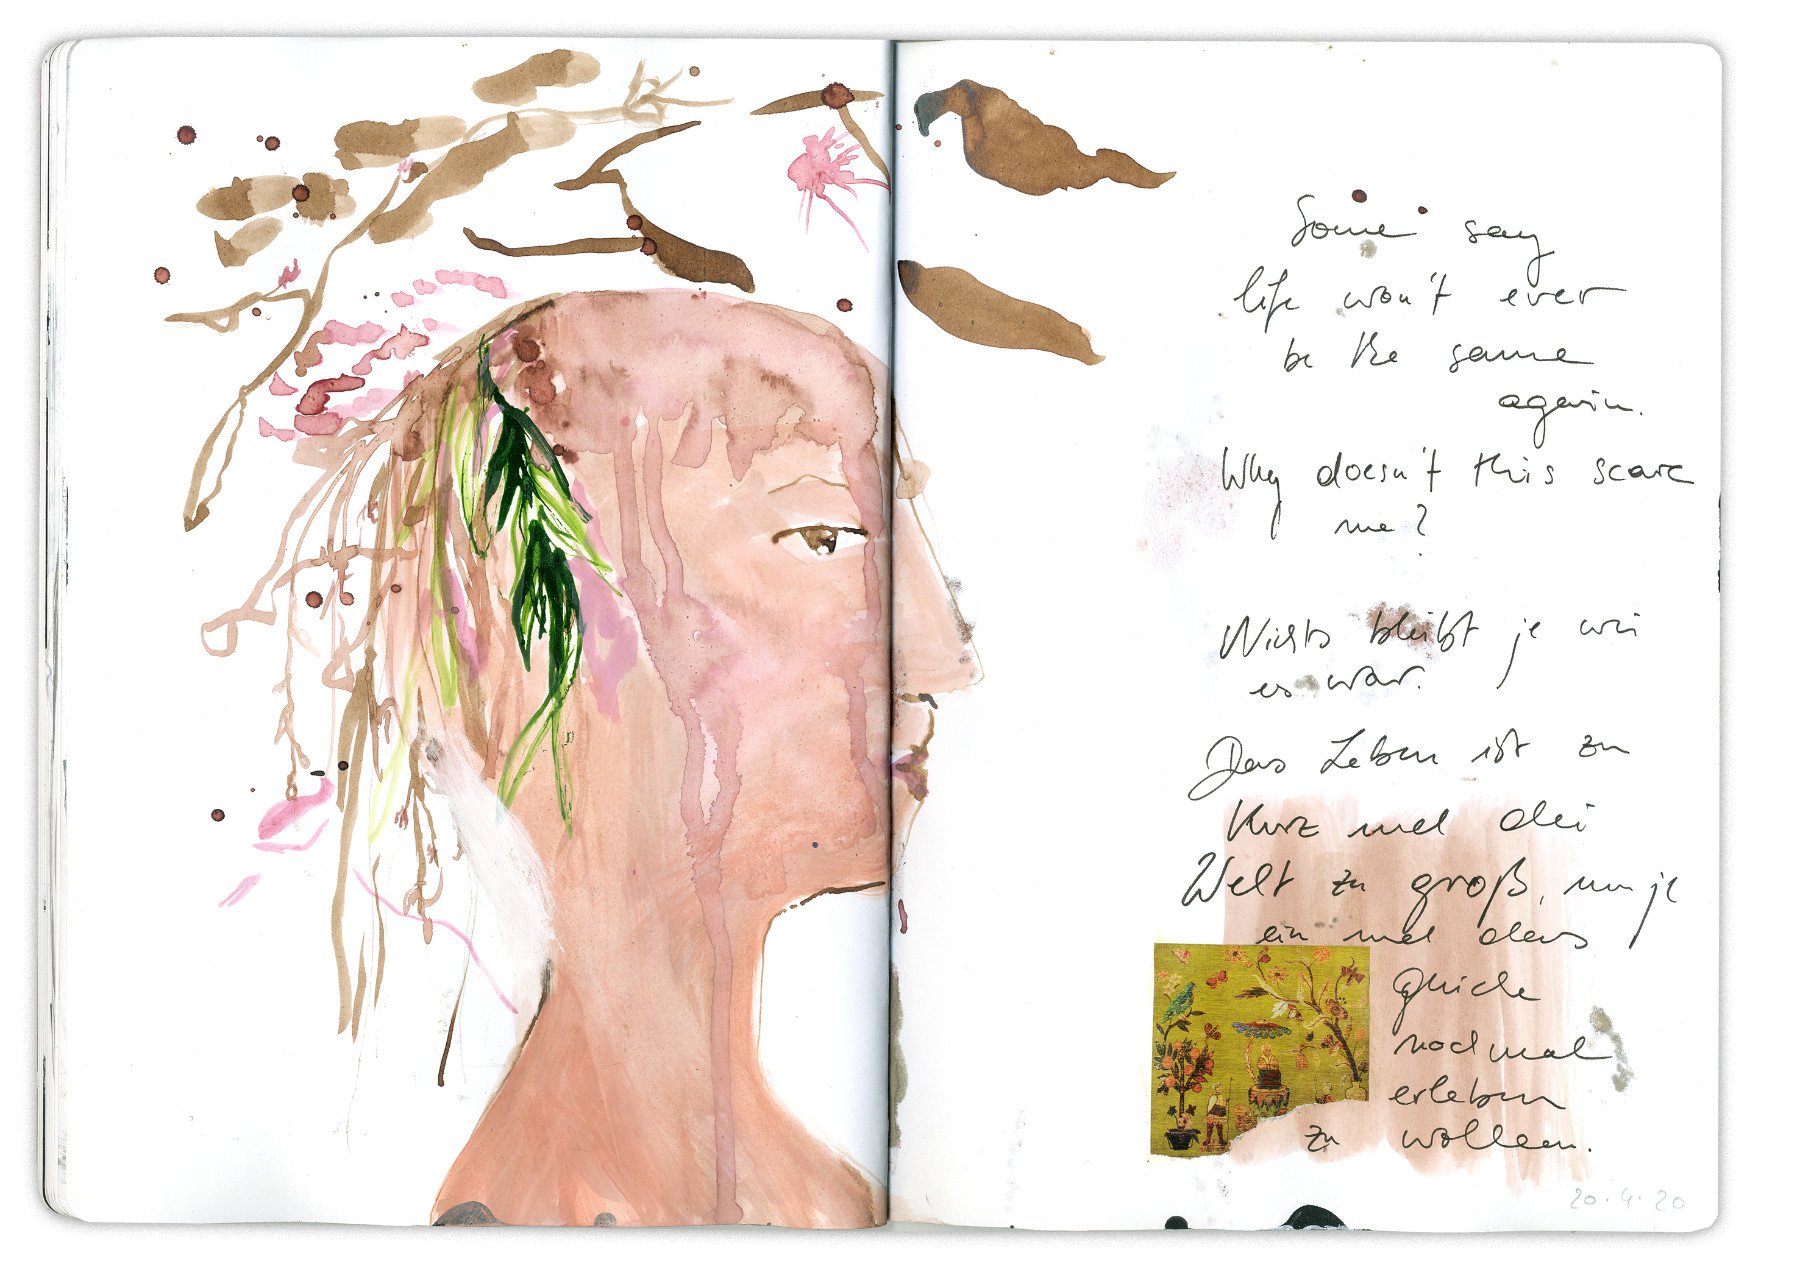 Some say
life won't ever
be the same
again.
Why doesn't this scare
me?
Nichts bleibt je wie
es war.
Das Leben ist zu
kurz und die
Welt zu groß, um je
ein und das
gleiche
nochmal
erleben
zu wollen.
20.4.20